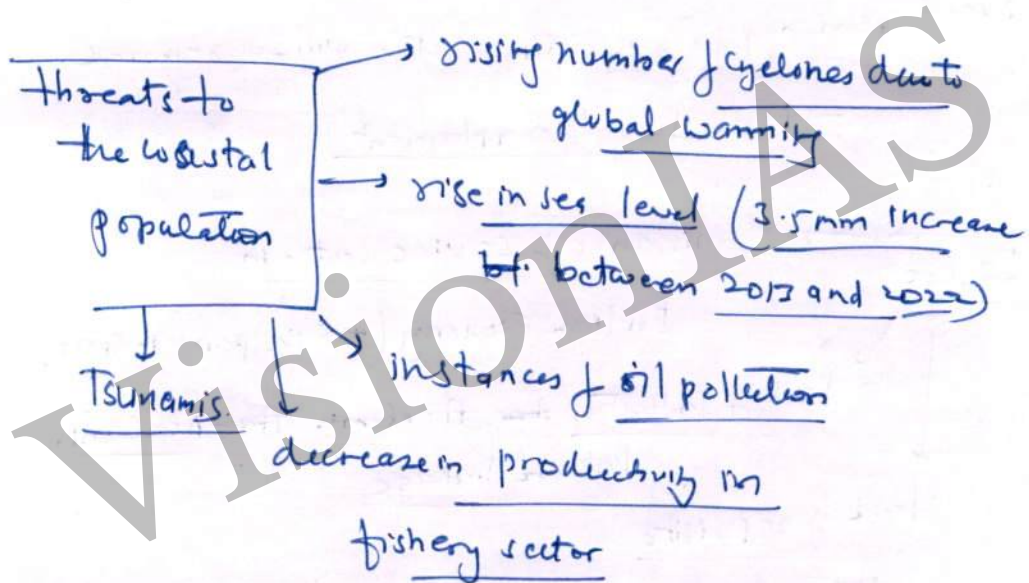 threats to
the coastal
population
rising number of cyclones due to
global warming
rise in sea level (3.5mm increase
bt. between 2013 and 2022)
instances of oil pollution
decrease in productivity in
fishery sector
Tsunamis.
VisionIAS